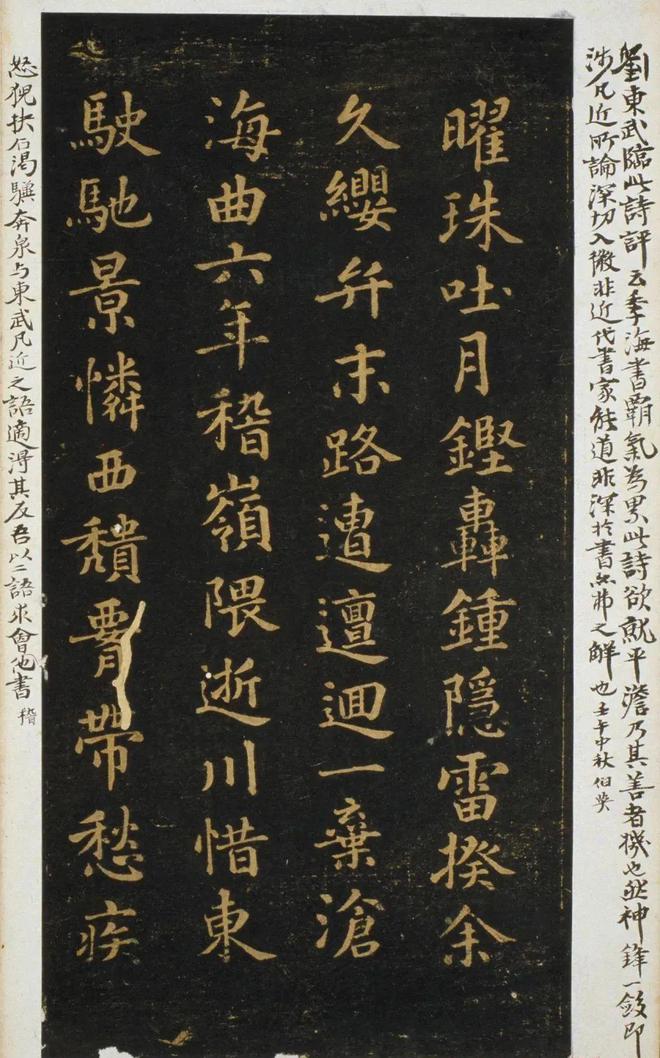 劉東武臨此詩評云季海書霸氣為累此詩欲就平澹乃其善者機也然神鋒一斂即
涉凡近所論深切入微非近代書家能道非深於書亦弗之解也壬午中秋伯英
曜珠吐月鏗轟鍾隱雷揆余
久纓弁末路遭邅迴一棄滄
海曲六年稽嶺隈逝川惜東
駛馳景憐西穨腰帶愁疾
怒猊抉石渴驥奔泉与東武凡近之語適得其反吾以二語求會他書
稽